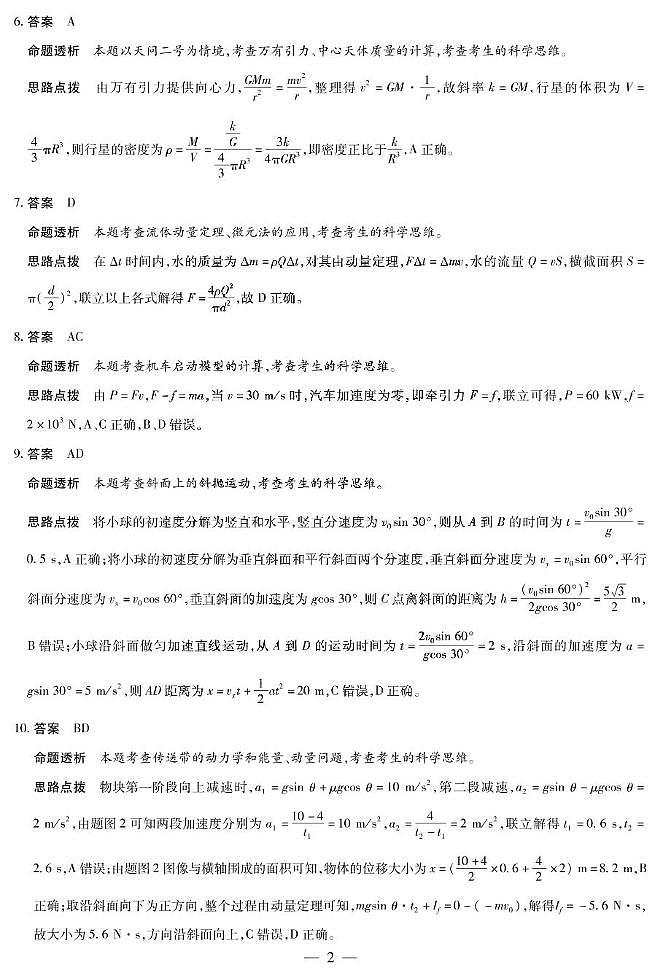 6. 答案 A
命题透析 本题以天问二号为情境,考查万有引力、中心天体质量的计算,考查考生的科学思维。
思路点拨 由万有引力提供向心力,GMm/r² = mv²/r,整理得 v² = GM · 1/r,故斜率 k = GM,行星的体积为 V =
4/3 πR³,则行星的密度为 ρ = M/V = (k/G)/(4/3 πR³) = 3k/4πGR³,即密度正比于 k/R³,A 正确。
7. 答案 D
命题透析 本题考查流体动量定理、微元法的应用,考查考生的科学思维。
思路点拨 在 Δt 时间内,水的质量为 Δm = ρQΔt,对其由动量定理,FΔt = Δmv,水的流量 Q = vS,横截面积 S =
π(d/2)²,联立以上各式解得 F = 4ρQ²/πd²,故 D 正确。
8. 答案 AC
命题透析 本题考查机车启动模型的计算,考查考生的科学思维。
思路点拨 由 P = Fv,F - f = ma,当 v = 30 m/s 时,汽车加速度为零,即牵引力 F = f,联立可得,P = 60 kW,f =
2 × 10³ N,A、C 正确,B、D 错误。
9. 答案 AD
命题透析 本题考查斜面上的斜抛运动,考查考生的科学思维。
思路点拨 将小球的初速度分解为竖直和水平,竖直分速度为 v₀sin 30°,则从 A 到 B 的时间为 t = v₀sin 30°/g =
0.5 s,A 正确;将小球的初速度分解为垂直斜面和平行斜面两个分速度,垂直斜面分速度为 vᵧ = v₀sin 60°,平行
斜面分速度为 vₓ = v₀cos 60°,垂直斜面的加速度为 gcos 30°,则 C 点离斜面的距离为 h = (v₀sin 60°)²/2gcos 30° = 5√3/2 m,
B 错误;小球沿斜面做匀加速直线运动,从 A 到 D 的运动时间为 t = 2v₀sin 60°/gcos 30° = 2 s,沿斜面的加速度为 a =
gsin 30° = 5 m/s²,则 AD 距离为 x = vₓt + 1/2 at² = 20 m,C 错误,D 正确。
10. 答案 BD
命题透析 本题考查传送带的动力学和能量、动量问题,考查考生的科学思维。
思路点拨 物块第一阶段向上减速时,a₁ = gsin θ + μgcos θ = 10 m/s²,第二段减速,a₂ = gsin θ - μgcos θ =
2 m/s²,由题图 2 可知两段加速度分别为 a₁ = (10 - 4)/t₁ = 10 m/s²,a₂ = 4/(t₂ - t₁) = 2 m/s²,联立解得 t₁ = 0.6 s,t₂ =
2.6 s,A 错误;由题图 2 图像与横轴围成的面积可知,物体的位移大小为 x = ((10 + 4)/2 × 0.6 + 4/2 × 2) m = 8.2 m,B
正确;取沿斜面向下为正方向,整个过程由动量定理可知,mgsin θ · t₂ + I_f = 0 - ( - mv₀),解得 I_f = - 5.6 N · s,
故大小为 5.6 N · s,方向沿斜面向上,C 错误,D 正确。
— 2 —